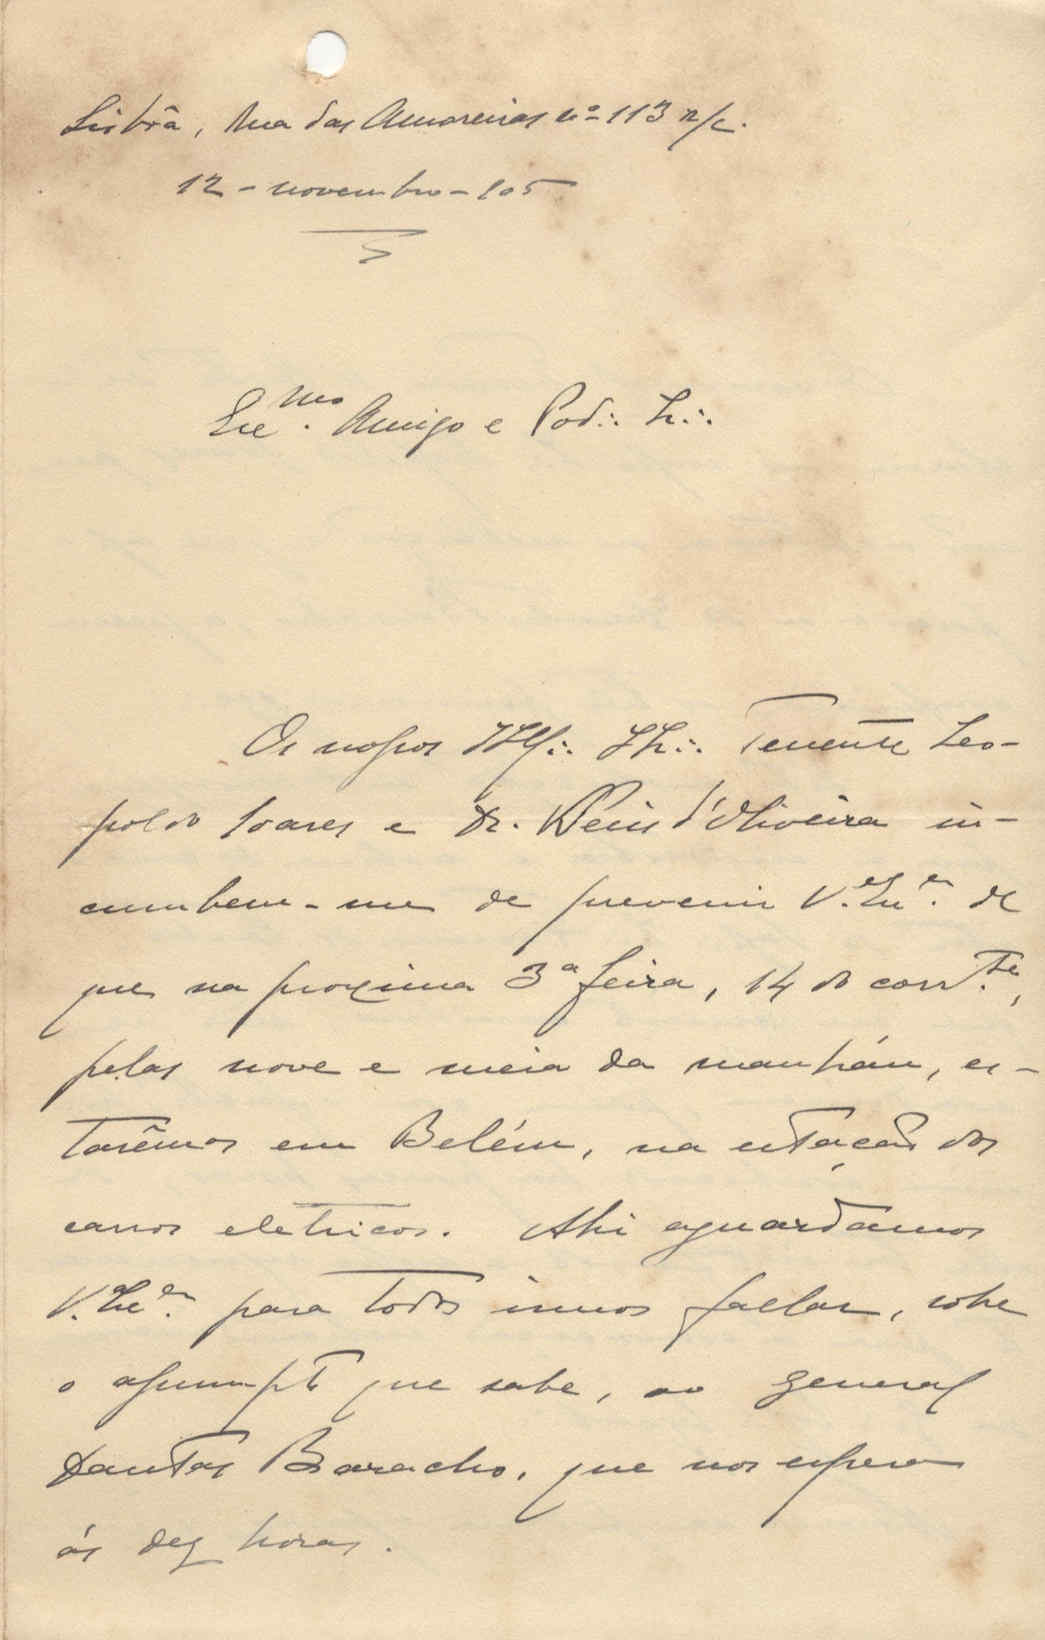 Lisbôa, Rua das Amoreiras nº 113 r/c.
12 - novembro - 905
Exc.mo Amigo e Pod∴ Ir∴
Os nossos Ill∴ IIr∴ Tenente Leo-
poldo Soares e Dr. Reis d'Oliveira in-
cumbem-me de prevenir V. Exª. de
que na proxima 3ª feira, 14 do corr.te,
pelas nove e meia da manhán, es-
tarêmos em Belém, na estação dos
carros eletricos. Ahi aguardâmos
V. Exª. para todos irmos fallar, sobre
o assumpto que sabe, ao general
Dantas Baracho, que nos espera
ás dez horas.